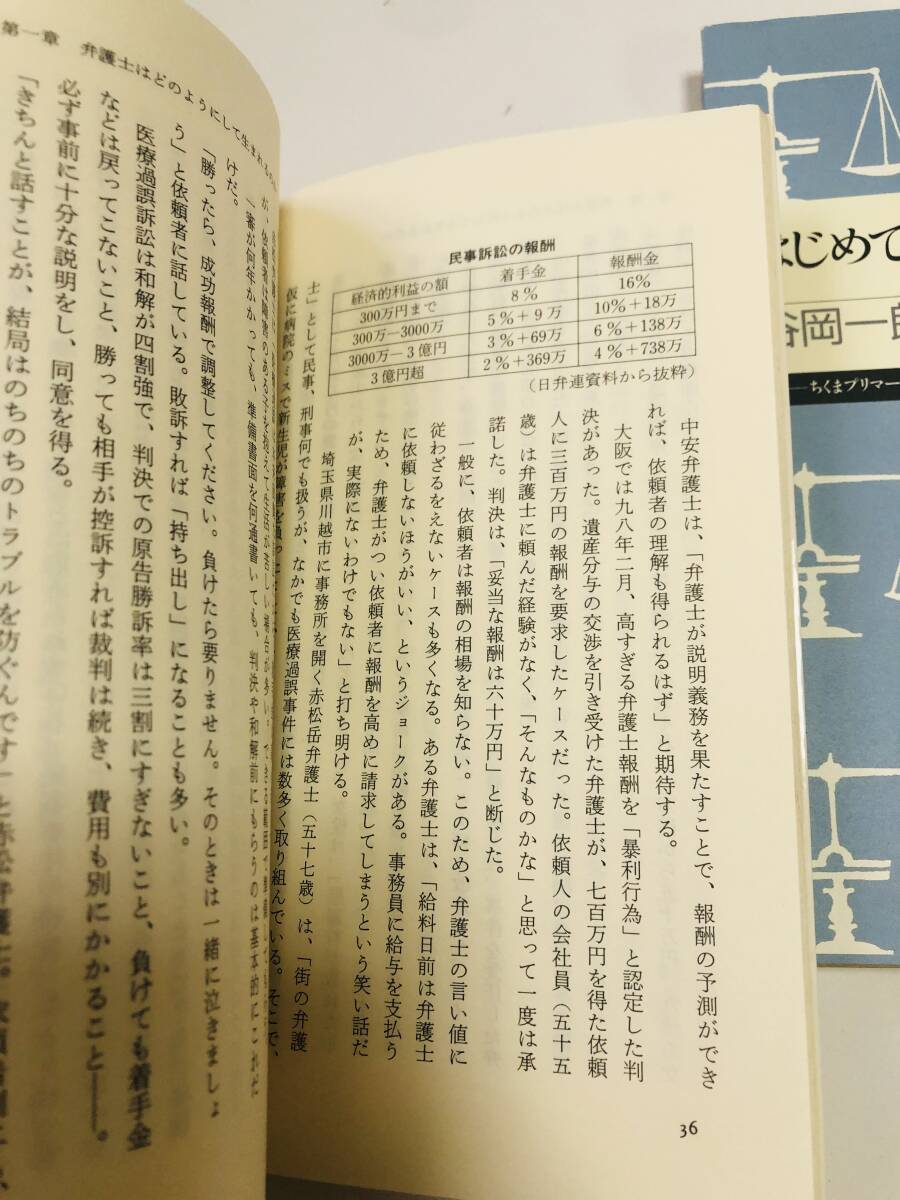 中安弁護士は、「弁護士が説明義務を果たすことで、報酬の予測ができ
れば、依頼者の理解も得られるはず」と期待する。
大阪では九八年二月、高すぎる弁護士報酬を「暴利行為」と認定した判
決があった。遺産分与の交渉を引き受けた弁護士が、七百万円を得た依頼
人に三百万円の報酬を要求したケースだった。依頼人の会社員(五十五
歳)は弁護士に頼んだ経験がなく、「そんなものかな」と思って一度は承
諾した。判決は、「妥当な報酬は六十万円」と断じた。
一般に、依頼者は報酬の相場を知らない。このため、弁護士の言い値に
従わざるをえないケースも多くなる。ある弁護士は、「給料日前は弁護士
に依頼しないほうがいい、というジョークがある。事務員に給与を支払う
ため、弁護士がつい依頼者に報酬を高めに請求してしまうという笑い話だ
が、実際にないわけでもない」と打ち明ける。
埼玉県川越市に事務所を開く赤松岳弁護士(五十七歳)は、「街の弁護
士」として民事、刑事何でも扱うが、なかでも医療過誤事件には数多く取り組んでいる。そこで、
仮に病院のミスで新生児が障害を負っ
民事訴訟の報酬
経済的利益の額 着手金 報酬金
300万円まで 8% 16%
300万―3000万 5%+9万 10%+18万
3000万―3億円 3%+69万 6%+138万
3億円超 2%+369万 4%+738万
(日弁連資料から抜粋)
36
第一章 弁護士はどのようにして生まれるのか
が、依頼者は障害のある子を抱えて生活が苦しい場合が多い。
一審が何年かかっても、準備書面を何通書いても、判決や和解前にもらうのは基本的にこれだ
けだ。
「勝ったら、成功報酬で調整してください。負けたら要りません。そのときは一緒に泣きましょ
う」と依頼者に話している。敗訴すれば「持ち出し」になることも多い。
医療過誤訴訟は和解が四割強で、判決での原告勝訴率は三割にすぎないこと、負けても着手金
などは戻ってこないこと、勝っても相手が控訴すれば裁判は続き、費用も別にかかること――。
必ず事前に十分な説明をし、同意を得る。
「きちんと話すことが、結局はのちのちのトラブルを防ぐんです」と赤松弁護士。
はじめて
谷岡一郎
ちくまプリマー